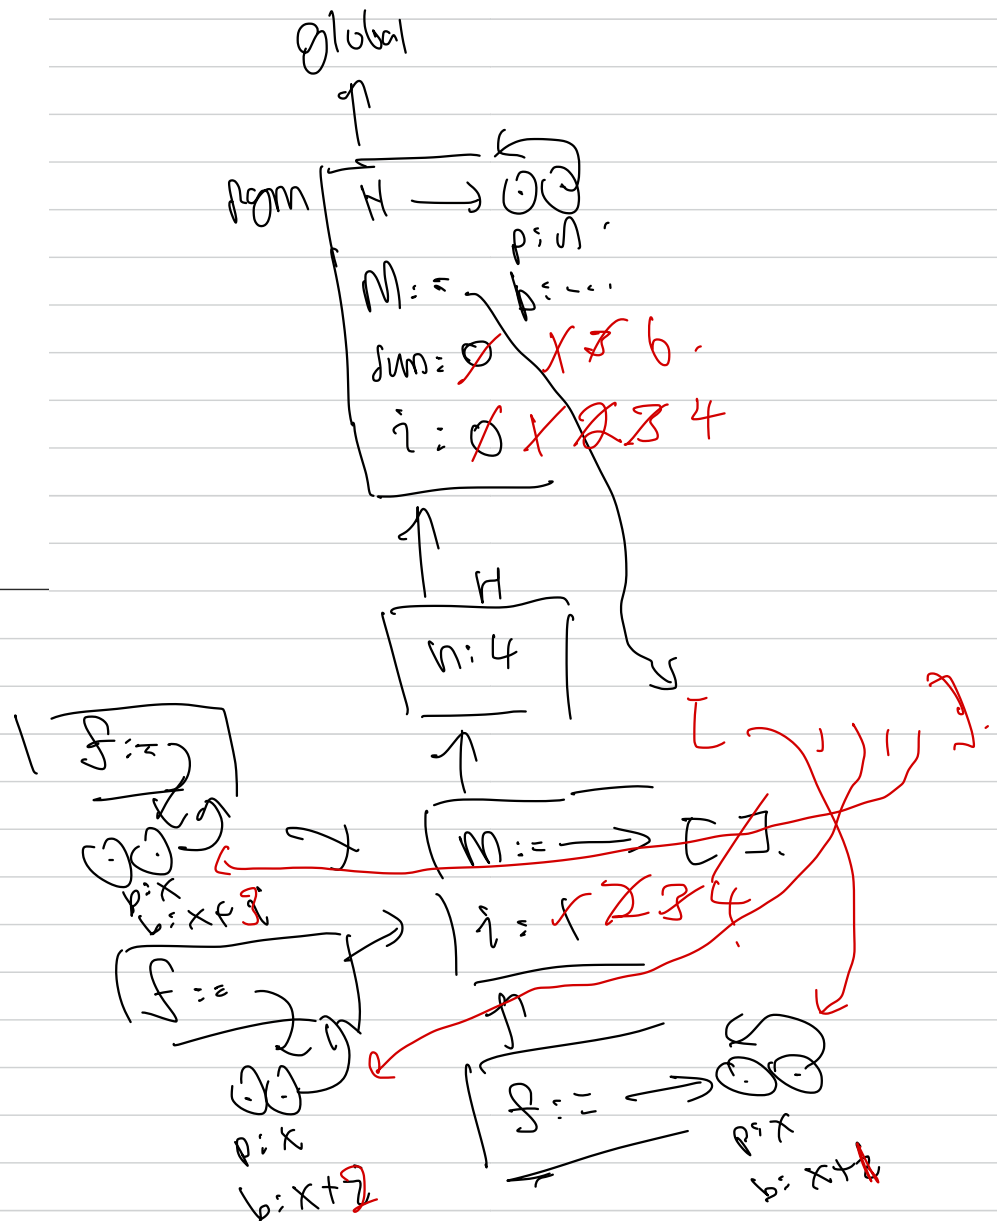 global
pgm
H →
p: n
M :=
b: ....
sum: 0 1 3 6
i : 0 1 2 3 4
H
n: 4
[ , , , ]
f :=
m := → [ ].
p: x
b: x+3
i : 1 2 3 4
f :=
f := →
p: x
b: x+2
p: x
b: x+1